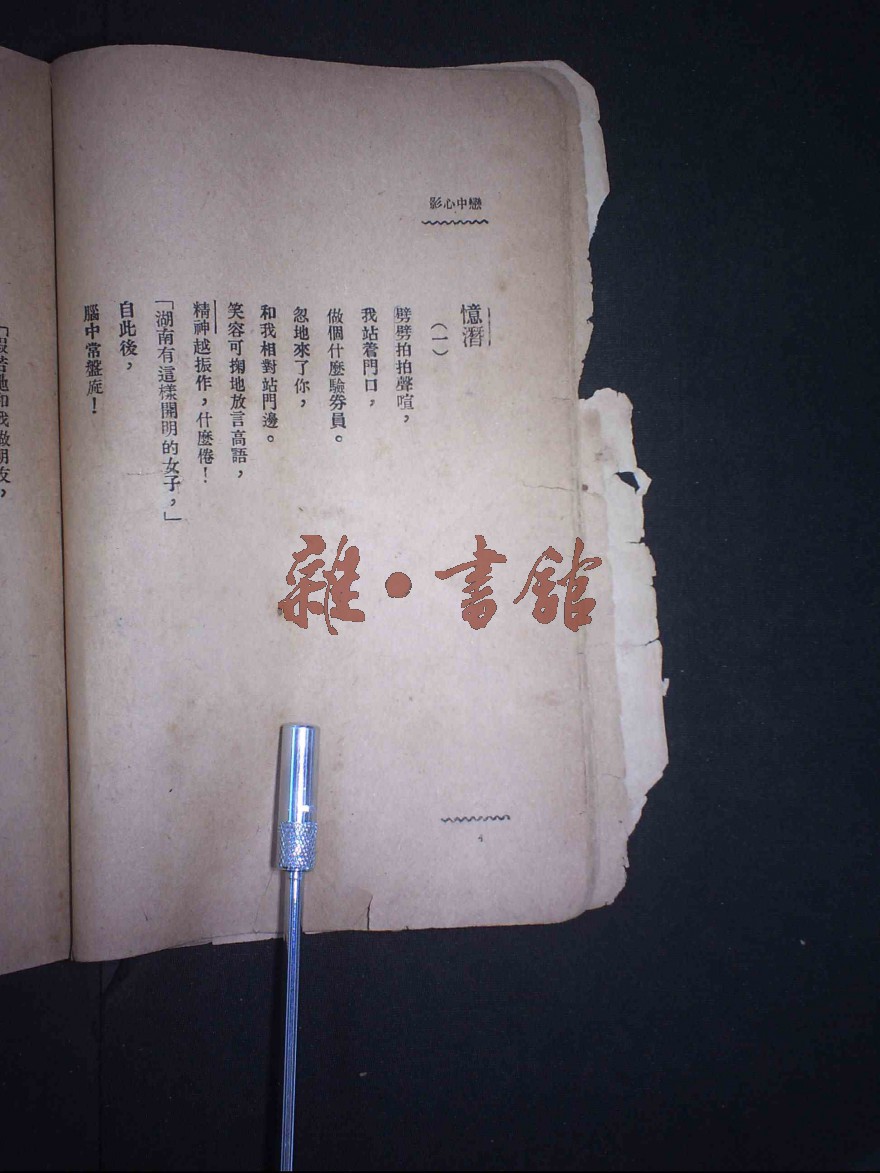 戀中心影
憶潛
(一)
劈劈拍拍聲喧,
我站着門口,
做個什麼驗券員。
忽地來了你,
和我相對站門邊。
笑容可掬地放言高語,
精神越振作,什麼倦!
「湖南有這樣開明的女子,」
自此後,
腦中常盤旋!
和我做朋友,
4
雜·書館